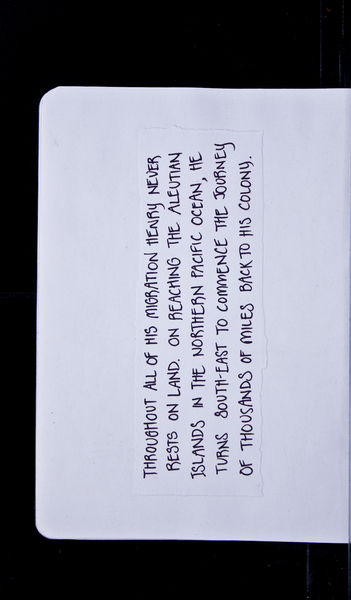 THROUGHOUT ALL OF HIS MIGRATION HENRY NEVER
RESTS ON LAND. ON REACHING THE ALEUTIAN
ISLANDS IN THE NORTHERN PACIFIC OCEAN, HE
TURNS SOUTH-EAST TO COMMENCE THE JOURNEY
OF THOUSANDS OF MILES BACK TO HIS COLONY.